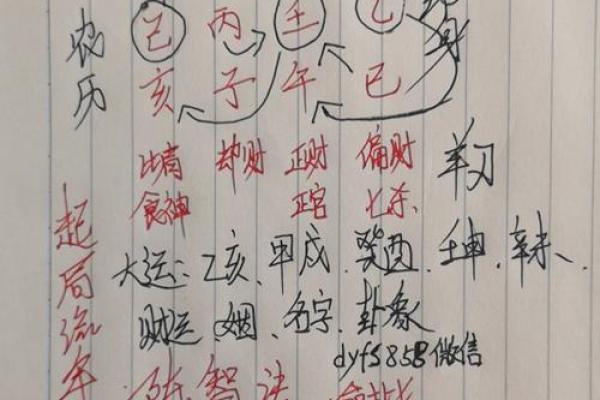 农历
己 丙 壬 乙
亥 子 午 巳
比肩 却财 正财 偏财 羊刃
食神 正官 七杀
起局流年
大运：乙亥、甲戌、癸酉、壬申、辛未、
财运、姻、名字、卦象
dyf5858微信